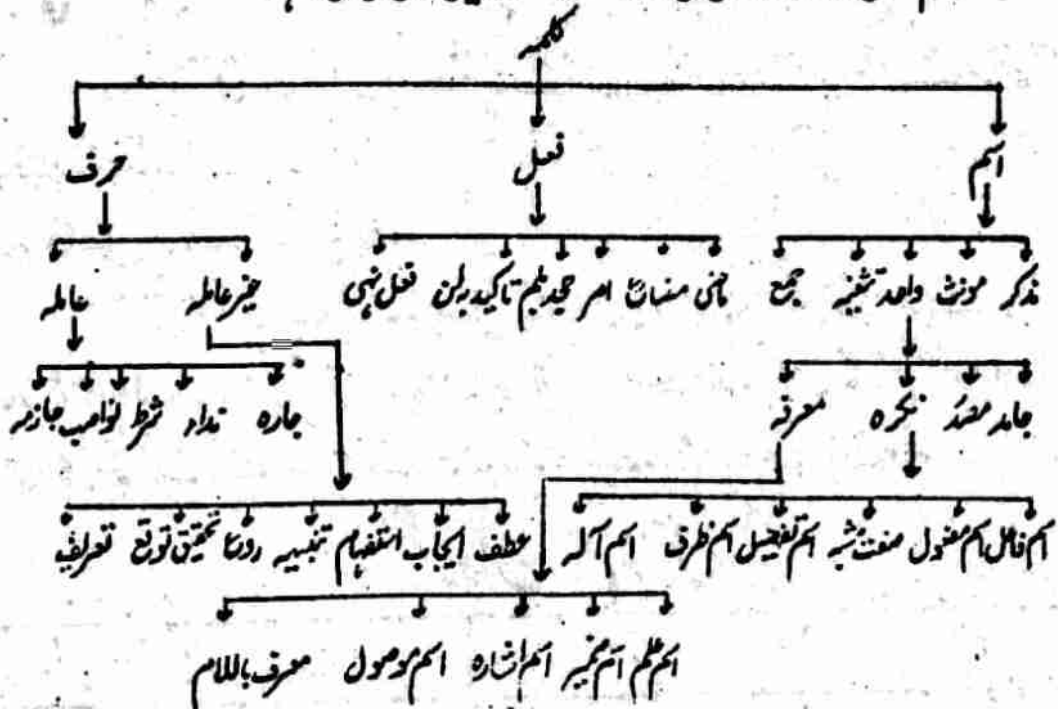 کلمہ
اسم فعل حرف
مذکر مونث واحد تثنیہ جمع ماضی مضارع امر حجد بلم تاکید بلن فعل نہی غیر عاملہ عاملہ
جامد مصدر نکرہ معرفہ جارہ نداء شرط نواصب جازمہ
اسم فاعل اسم مفعول صفت مشبہ اسم تفضیل اسم ظرف اسم آلہ عطف ایجاب استفہام تنبیہ ردع تحقیق توقع تعریف
اسم علم اسم ضمیر اسم اشارہ اسم موصول معرف باللام